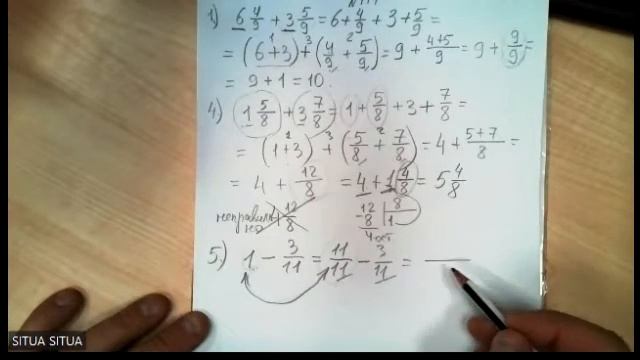 1) 6 4/9 + 3 5/9 = 6 + 4/9 + 3 + 5/9 =
= (6 + 3) + (4/9 + 5/9) = 9 + 4+5/9 = 9 + 9/9 =
= 9 + 1 = 10.
4) 1 5/8 + 3 7/8 = 1 + 5/8 + 3 + 7/8 =
= (1 + 3) + (5/8 + 7/8) = 4 + 5+7/8 =
= 4 + 12/8 = 4 + 1 4/8 = 5 4/8
неправиль но 4 12/8
12 | 8
- 8 | 1
4 ост
5) 1 - 3/11 = 11/11 - 3/11 =
SITUA SITUA